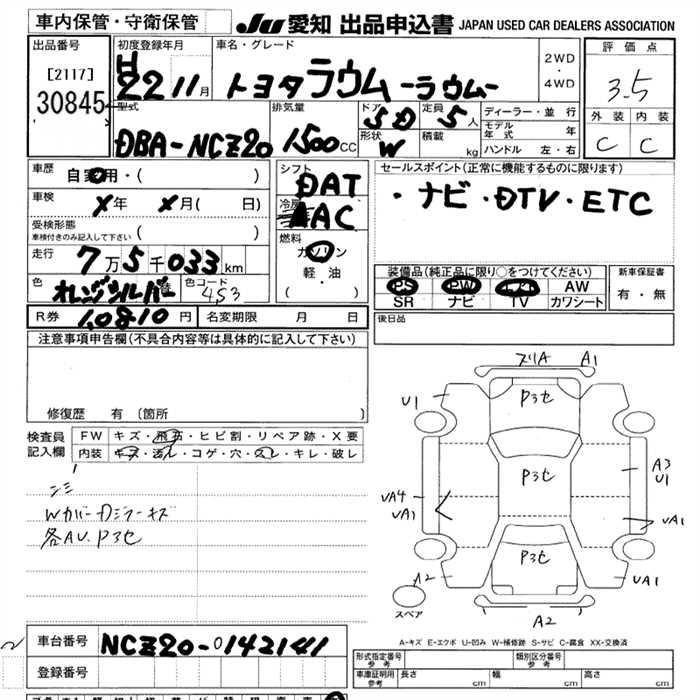 車内保管・守衛保管
JU 愛知 出品申込書 JAPAN USED CAR DEALERS ASSOCIATION
出品番号
[2117]
30845
初度登録年月
H
22 11月
車名・グレード
トヨタラウム -ラウム-
2WD
・
4WD
評価点
3.5
外装 内装
C C
型式
DBA-NCZ20
排気量
1500cc
ドア
5D
形状
W
定員
5人
積載
kg
ディーラー・並行
モデル年式 年
ハンドル 左・右
車歴
自家用・( )
車検
X年 X月( 日)
受検形態
車検付きのみ記入して下さい ( )
走行
7万5千033km
色
オレンジシルバー
替
色コード
4S3
R券
10810円
名変期限 月 日
シフト
DAT
冷房
AAC
燃料
ガソリン
軽・油
( )
セールスポイント(正常に機能するものに限ります)
・ナビ・DTV・ETC
装備品(純正品に限り○をつけてください)
PS PW AW
SR ナビ TV カワシート
新車保証書
有・無
後日品
注意事項申告欄(不具合内容等は具体的に記入して下さい)
修復歴 有 (箇所 )
検査員
記入欄
FW キズ・飛石・ヒビ割・リペア跡・X要
内装 キズ・汚レ・コゲ・穴・スレ・キレ・破レ
シミ
Wカバー カジラーキズ
各AU. P3セ
ズリA A1
U1
P3セ
P3セ
A3
U1
UA4
UA1
UA1
P3セ
A2
UA1
スペア
A2
A-キズ E-エクボ U-凹み W-補修跡 S-サビ C-腐食 XX-交換済
車台番号
NCZ20-0142141
登録番号
形式指定番号
参考
類別区分番号
参考
車庫証明用
参考
長さ cm 幅 cm 高さ cm